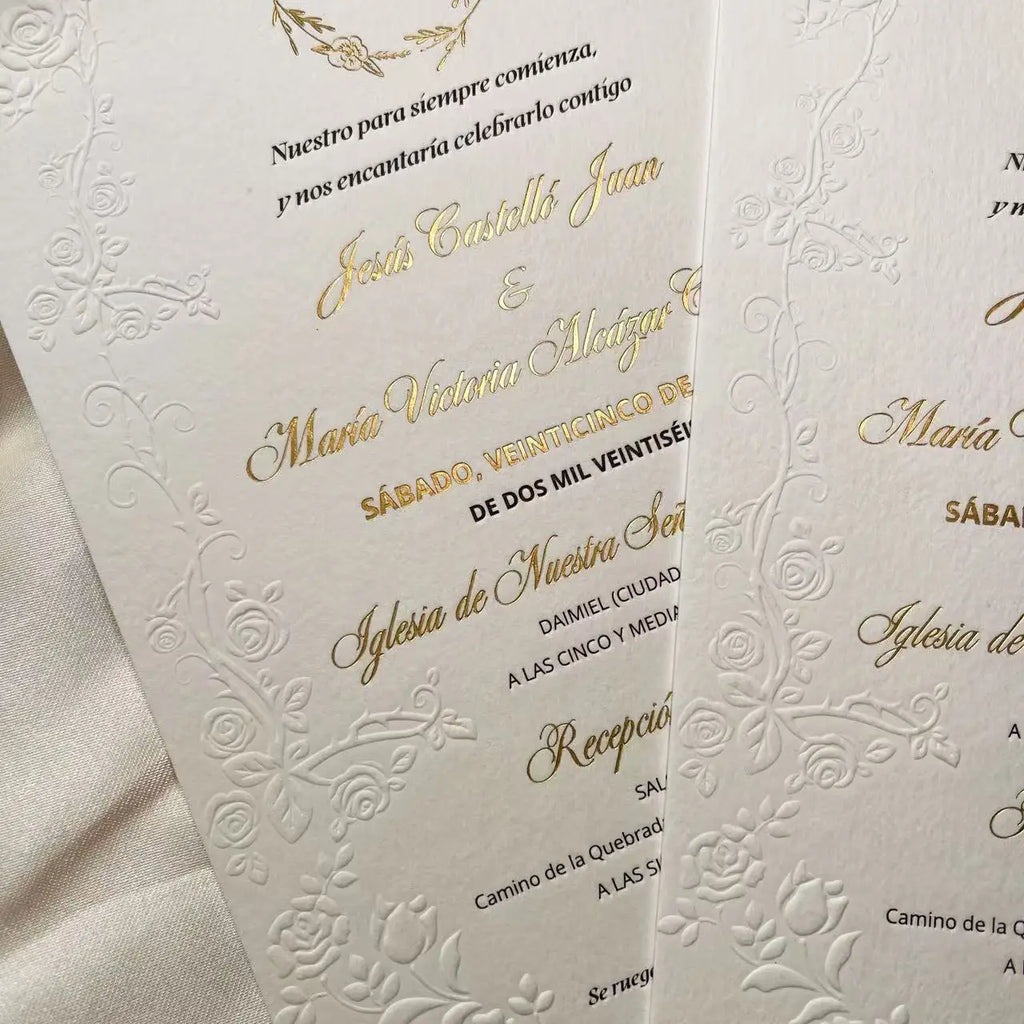 Nuestro para siempre comienza,
y nos encantaría celebrarlo contigo
Jesús Castelló Juan
&
María Victoria Alcázar
SÁBADO, VEINTICINCO DE
DE DOS MIL
Iglesia de Nuestra
DAIMIEL (CIUDAD
A LAS CINCO Y MEDIA
Recepció
SAL
Camino de la
A LAS
Se
María
Iglesia de
A
Camino de la
A